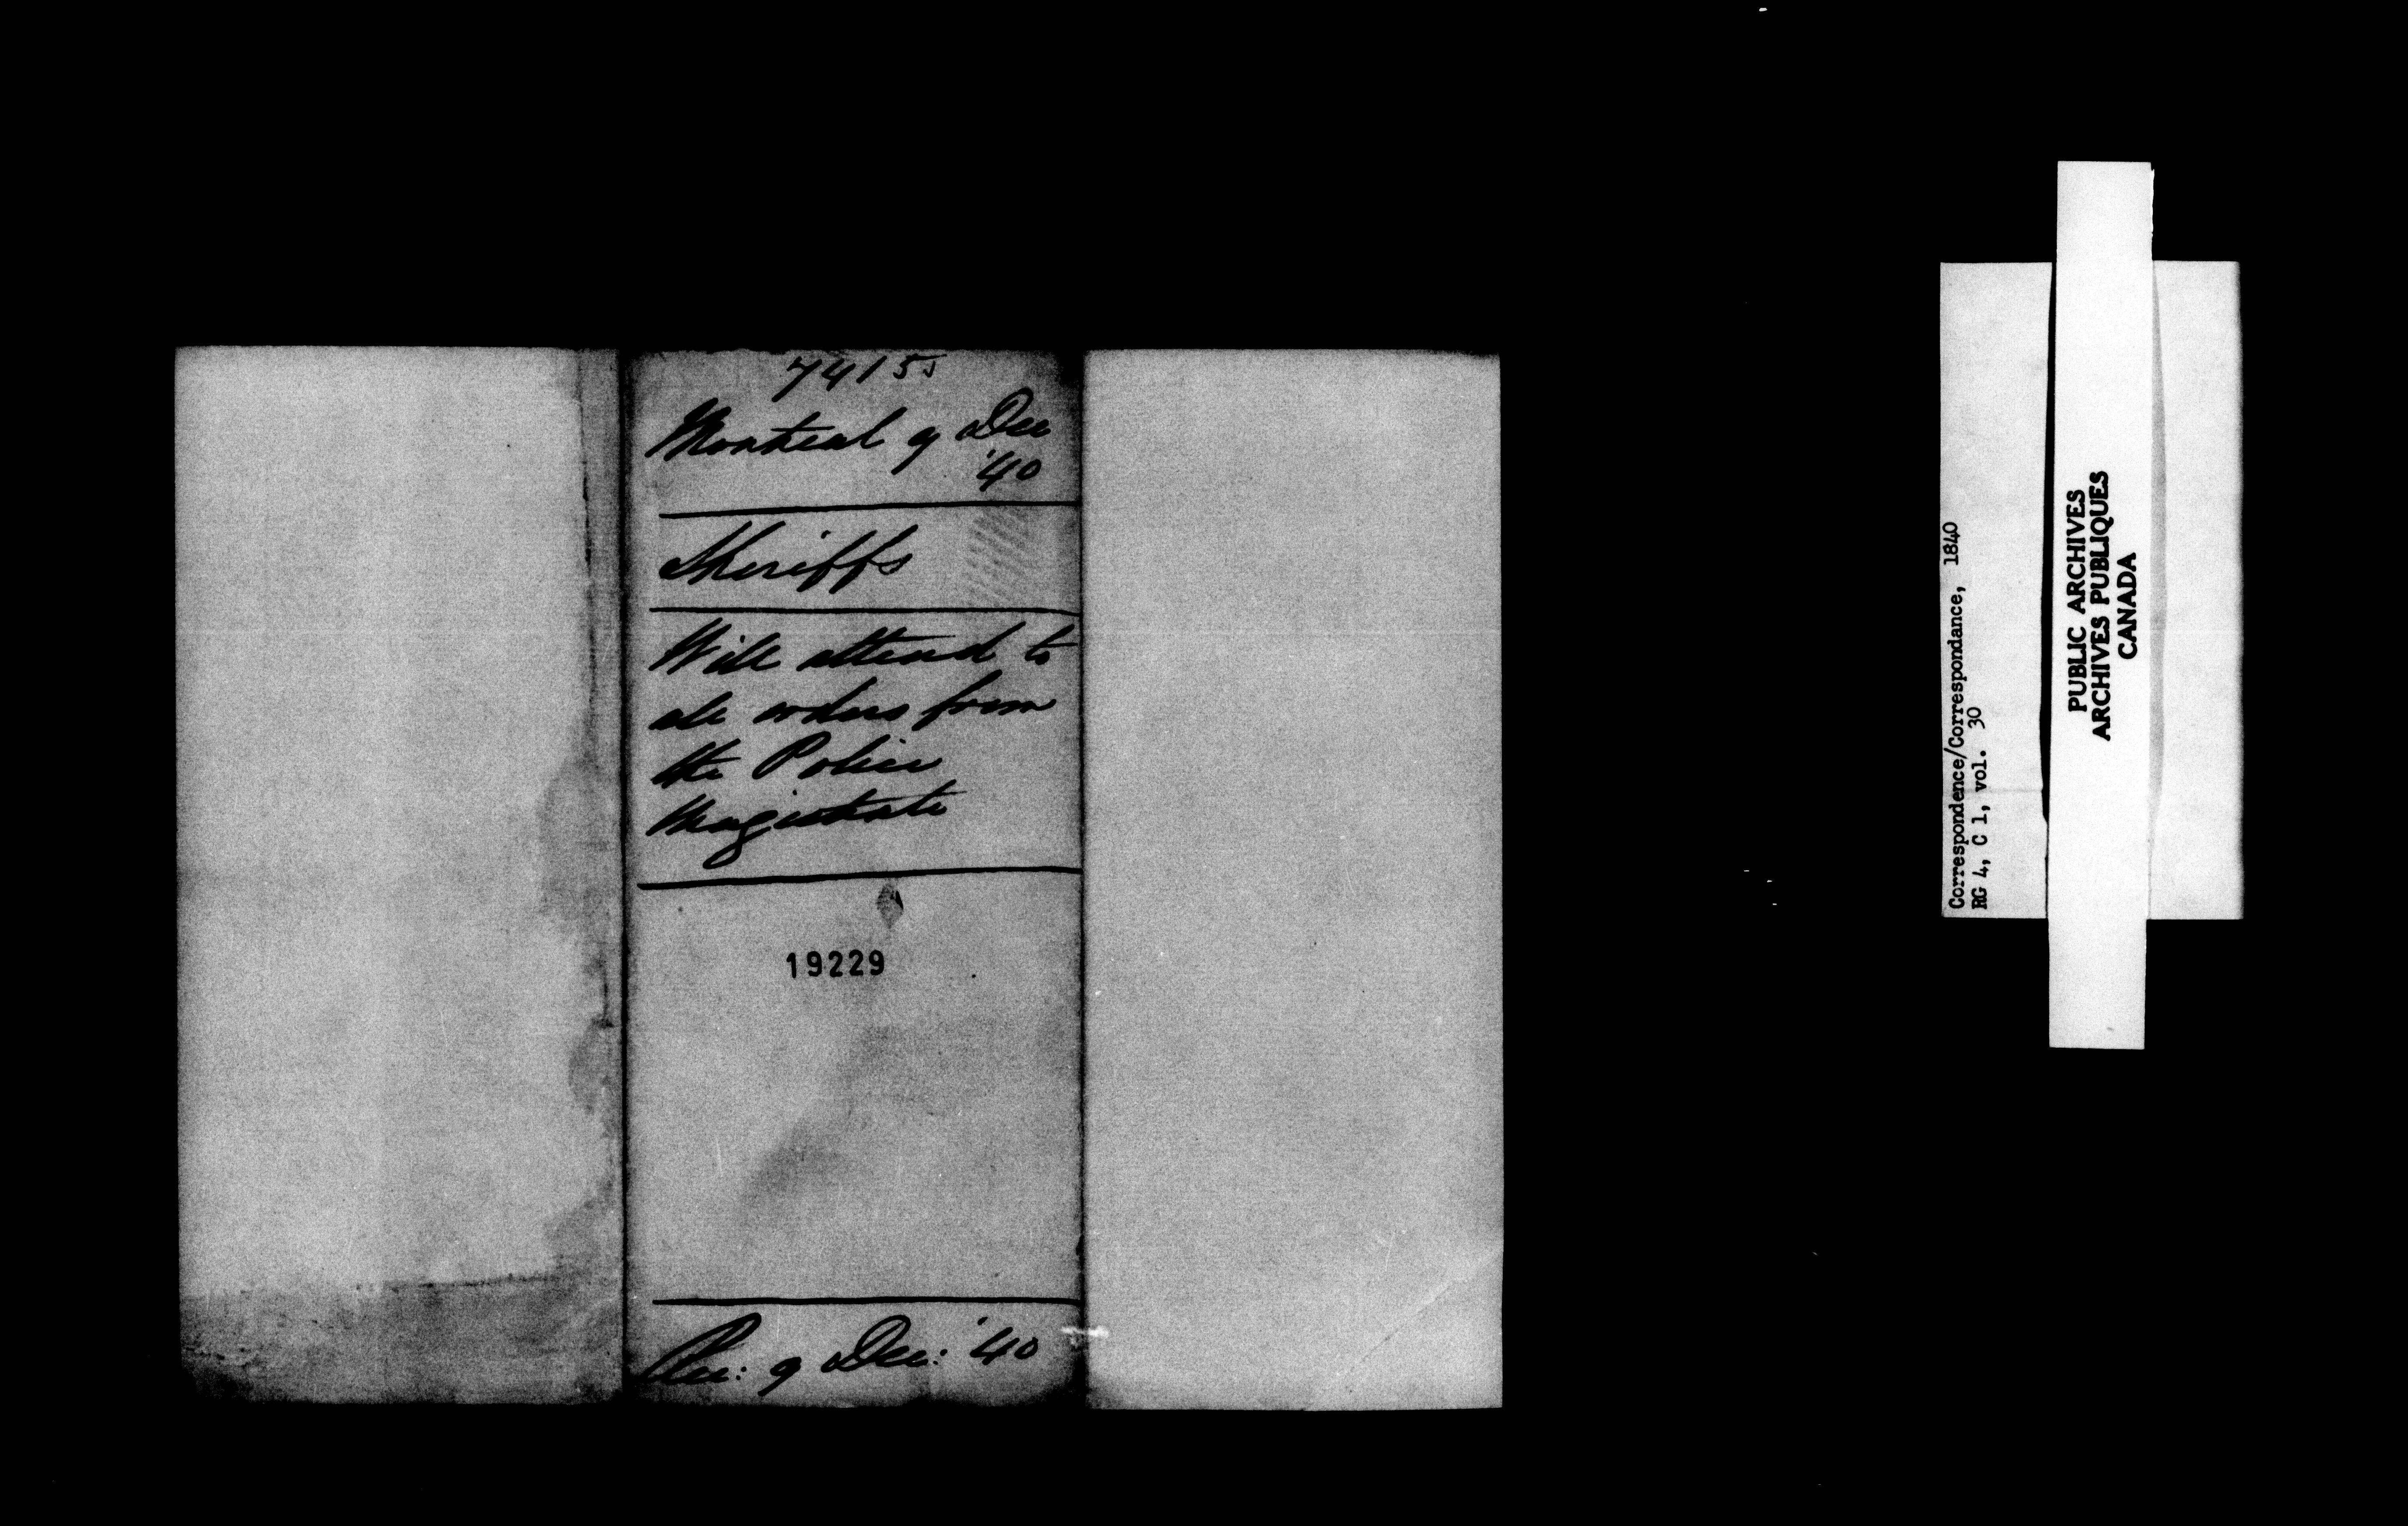 7415 J
Montreal 9 Dec
'40
Sheriffs
Will attend to
all orders from
the Police
Magistrate
19229
Rec: 9 Dec: '40
Correspondence/Correspondance, 1840
RG 4, C 1, vol. 30
PUBLIC ARCHIVES
ARCHIVES PUBLIQUES
CANADA